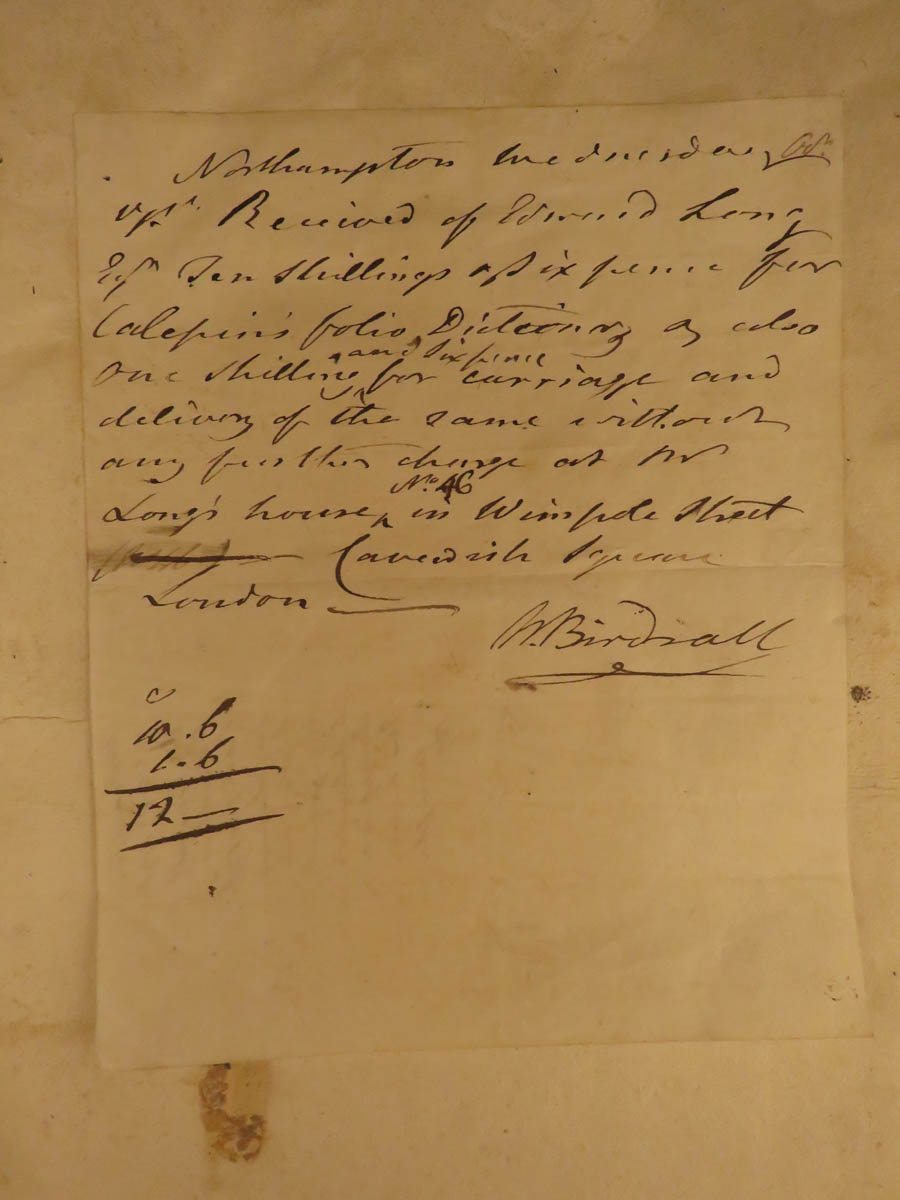 Northampton Wednesday Octr
Received of Edward Long
Esqr Ten Shillings & Sixpence for
Calepin's folio Dictionary & also
One Shilling and Sixpence for carriage and
delivery of the same without
any further charge at Mr
Long's house No. 46 in Wimpole Street
Cavedish Square
London
W. Birdsall
10.6
1.6
12—